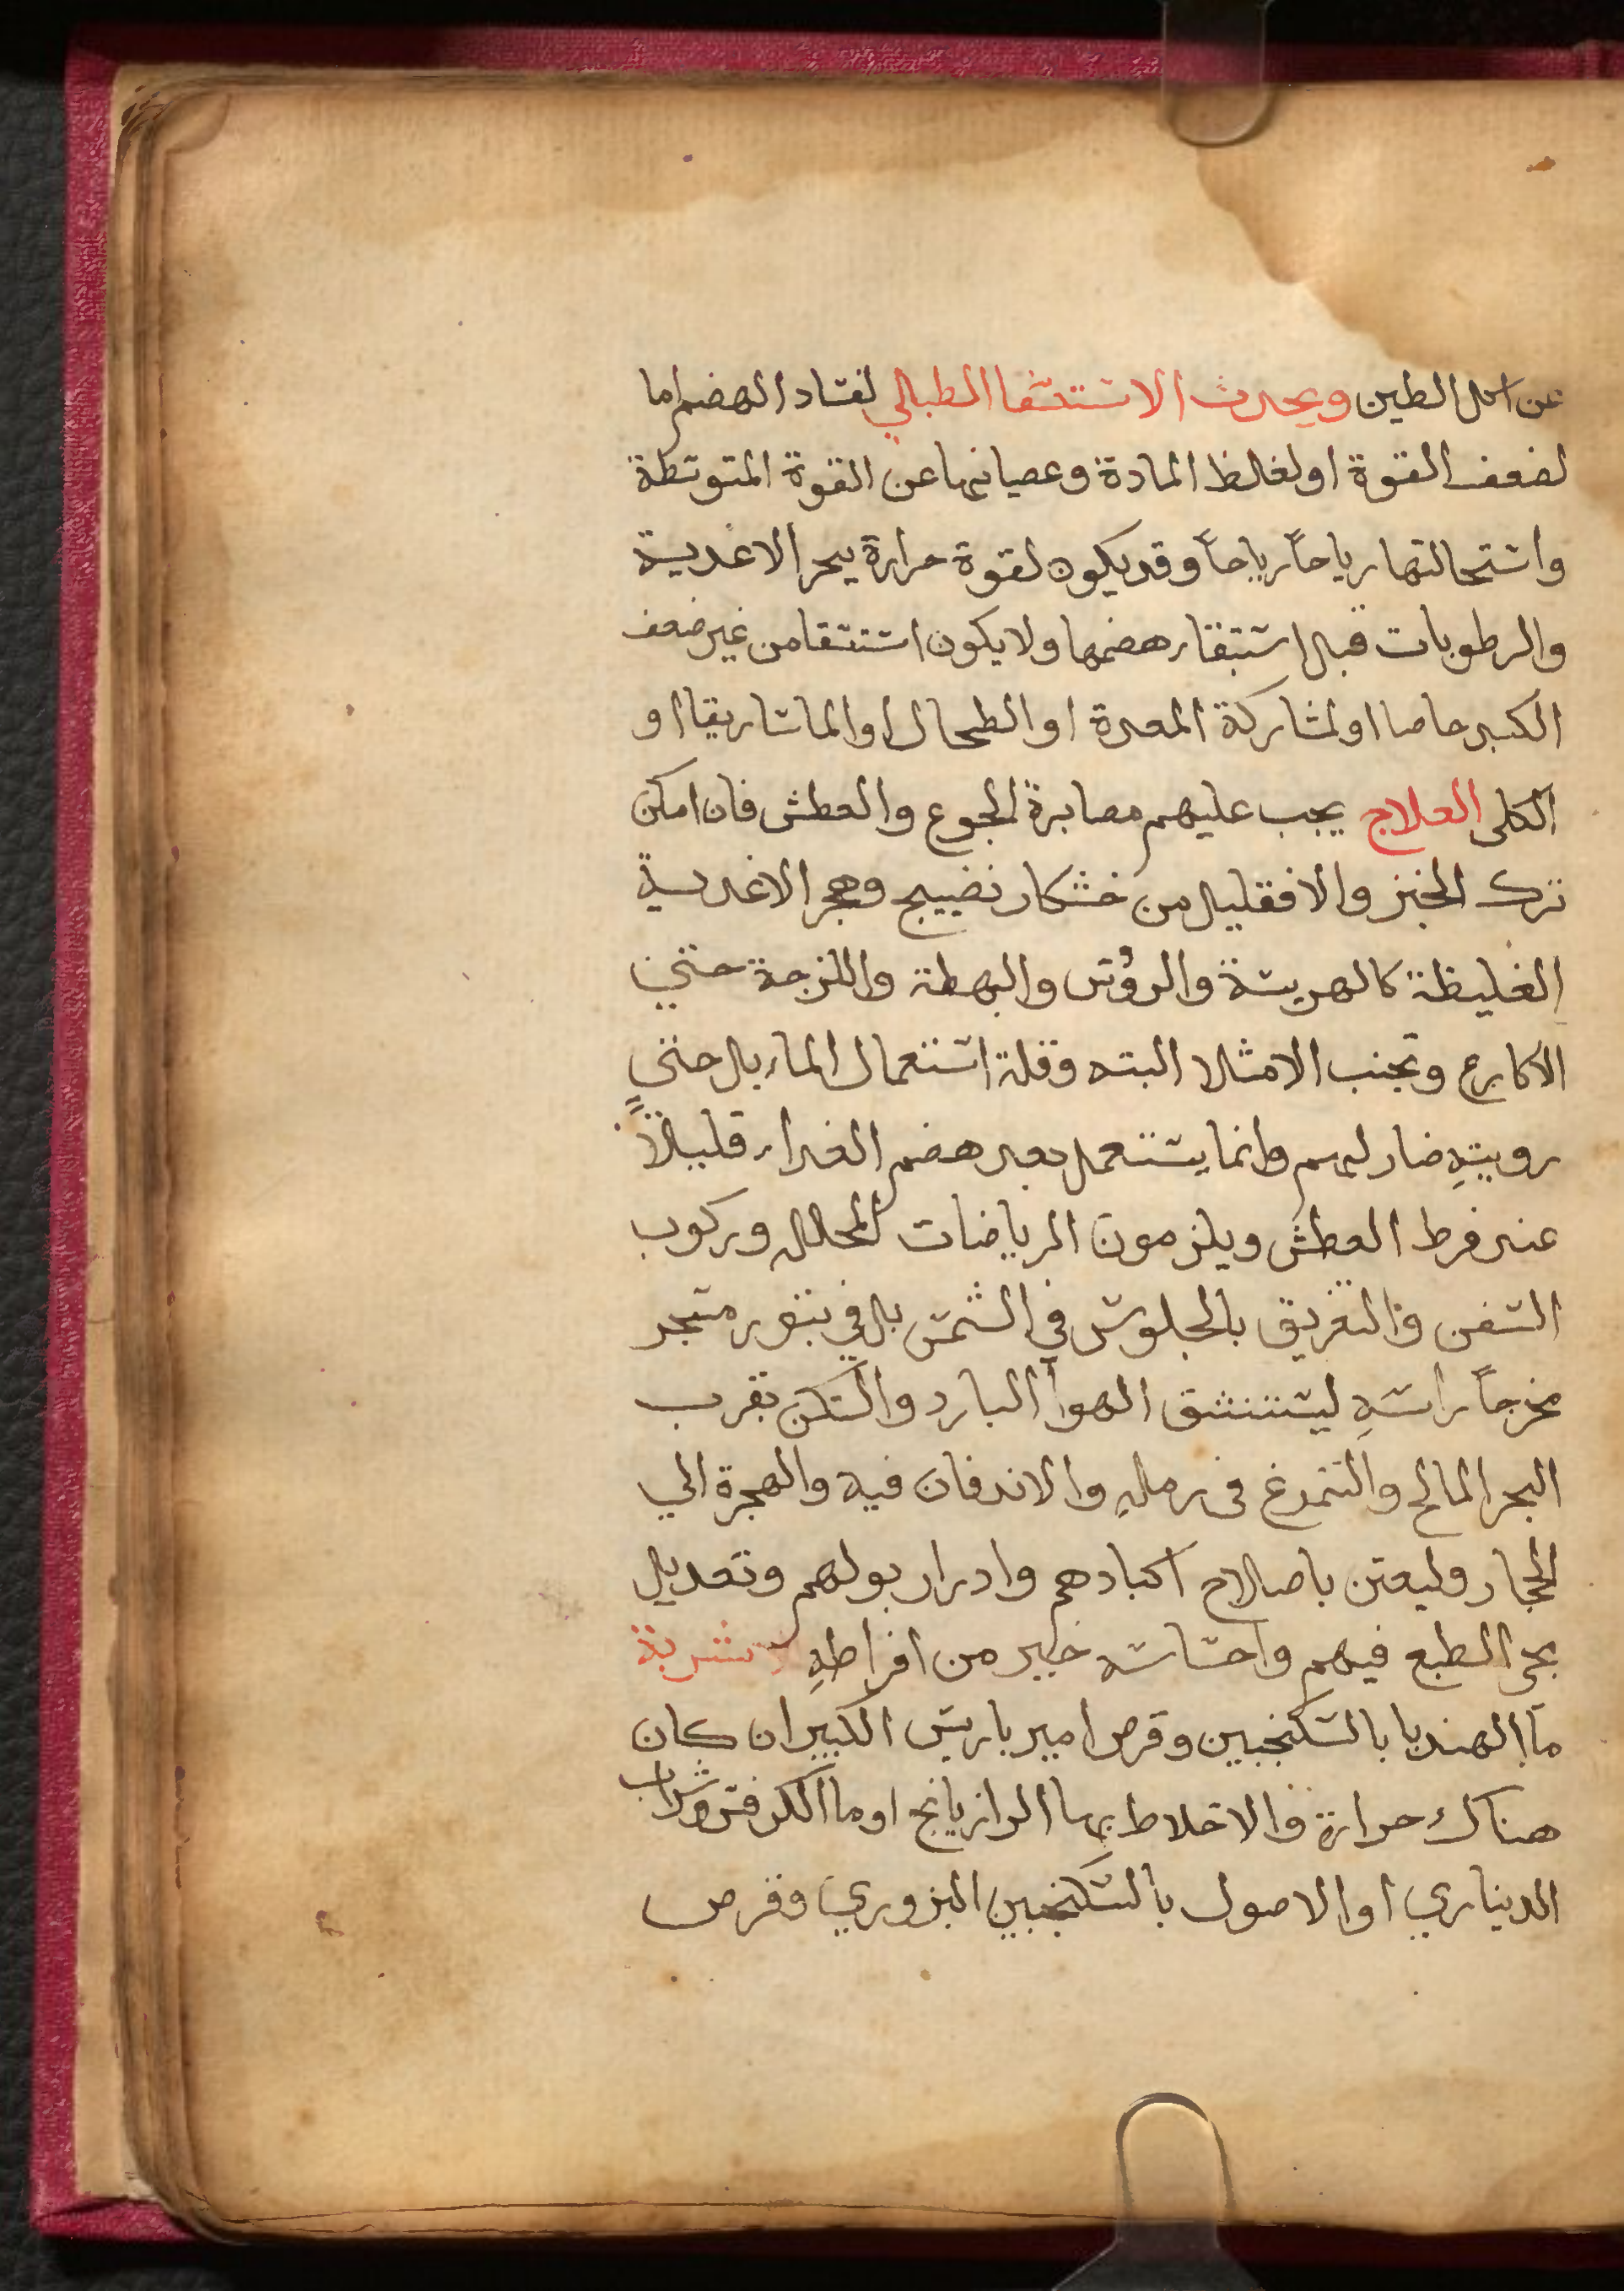 عن اكل الطين ويحدث الاستسقا الطبلي لفساد الهضم اما
لضعف القوة او لغلظ المادة وعصيانها عن القوة المتوسطة
واستحالتها رياحاً رياحاً وقد يكون لقوة حرارة يبحر الاغدية
والرطوبات قبل استيقار هضمها ولا يكون استسقا من غير ضعف
الكبد خاصا او لمشاركة المعدة او الطحال او الماساريقا او
الكلى العلاج يجب عليهم مصابرة الجوع والعطش فان امكن
ترك الخبز والا فقليل من خشكار نضيج وهجر الاغدية
الغليظة كالهريسة والروس والبهطة واللزجة حتي
الاكارع وتجنب الامتلا البته وقلة استعمال الماء بل حتي
رويتهِ ضار لهم وانما يستعمل بعد هضم الغداء قليلاً
عند فرط العطش ويلزمون الرياضات المحلله وركوب
السفن والتعريق بالجلوس في الشمس بل في تنور مسجر
مخرجاً راسهِ ليستنشق الهوآ البارد والسكن بقرب
البحر المالح والتمرغ في رملهِ والاندفان فيه والهجرة الي
الحجاز وليعتن باصلاح اكبادهم وادرار بولهم وتعديل
مجى الطبع فيهم واحتباسه خير من افراطهِ الاشربة
مآ الهندبا بالسكنجبين وقرص امير باريس الكبير ان كان
هناك حرارة والاخلاط بها الرازيانج او مآ الكرفس وشراب
الديناري او الاصول بالسكنجبين البزوري وقرص